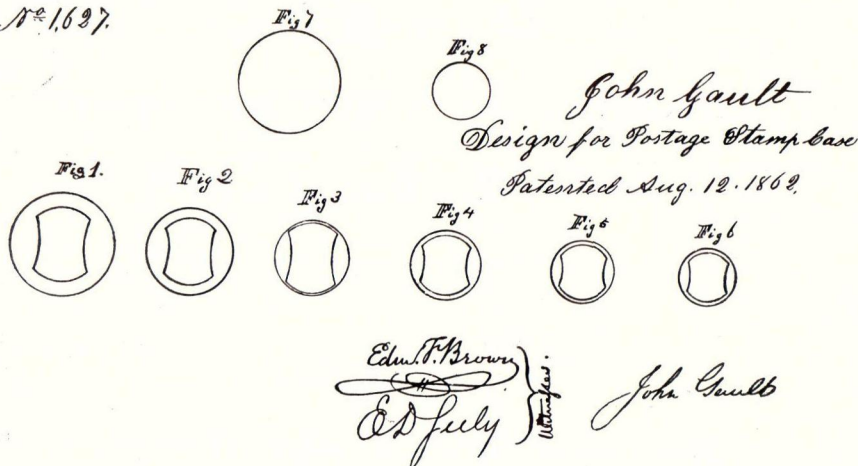 Nº 1,627.
Fig 7
Fig 8
John Gault
Design for Postage Stamp Case
Patented Aug. 12. 1862.
Fig 1.
Fig 2
Fig 3
Fig 4
Fig 5
Fig 6
Edw. F. Brown
Witnesses.
John Gault